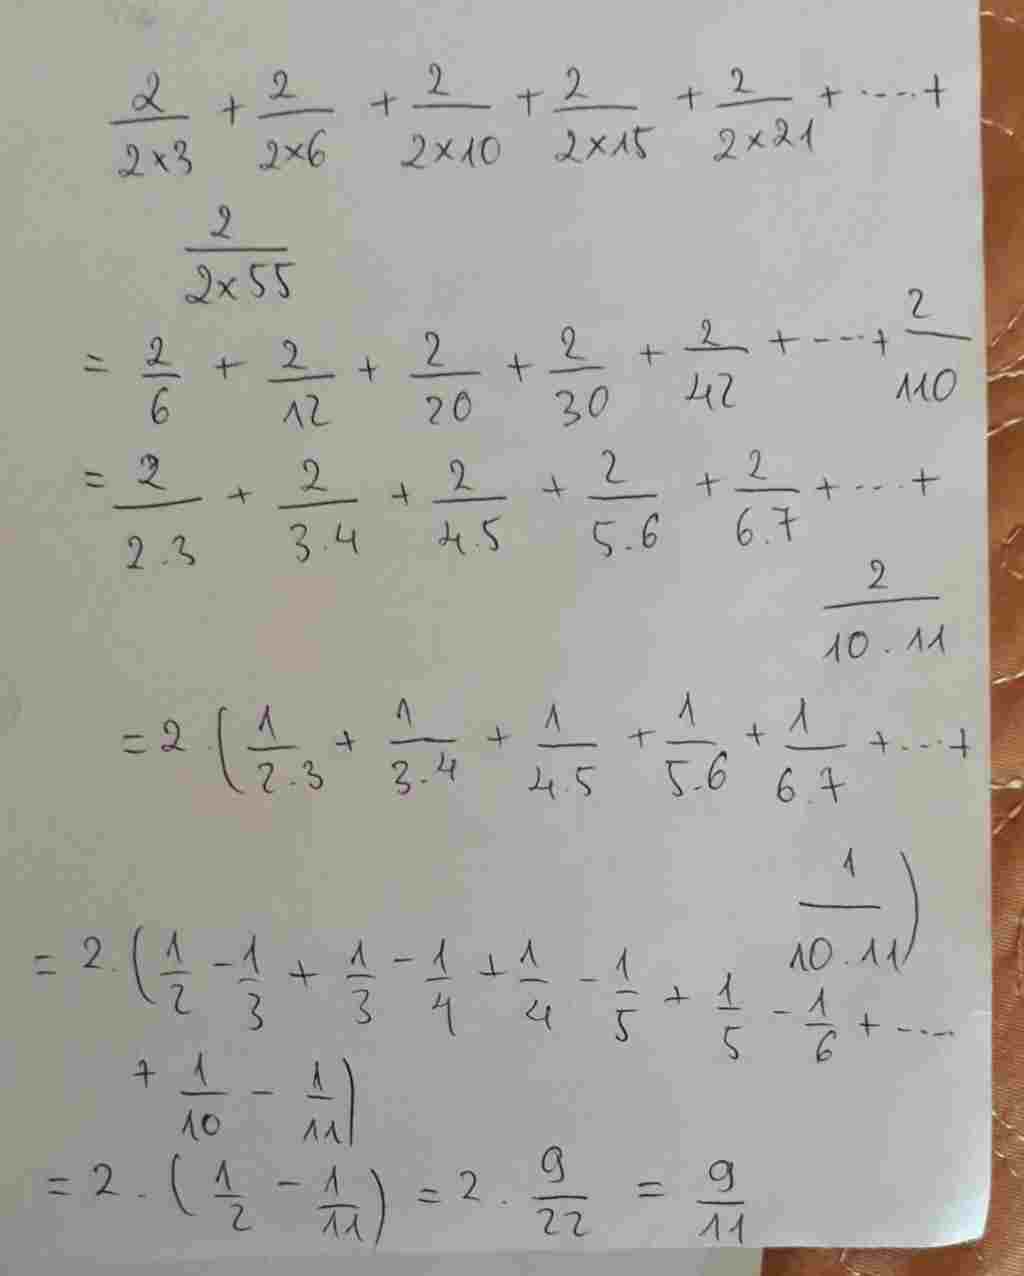 2/(2×3) + 2/(2×6) + 2/(2×10) + 2/(2×15) + 2/(2×21) + ....+
2/(2×55)
= 2/6 + 2/12 + 2/20 + 2/30 + 2/42 + ...+ 2/110
= 2/(2.3) + 2/(3.4) + 2/(4.5) + 2/(5.6) + 2/(6.7) + ...+
2/(10.11)
= 2.(1/(2.3) + 1/(3.4) + 1/(4.5) + 1/(5.6) + 1/(6.7) + ...+
1/(10.11))
= 2.(1/2 - 1/3 + 1/3 - 1/4 + 1/4 - 1/5 + 1/5 - 1/6 + ....
+ 1/10 - 1/11)
= 2.(1/2 - 1/11) = 2.9/22 = 9/11